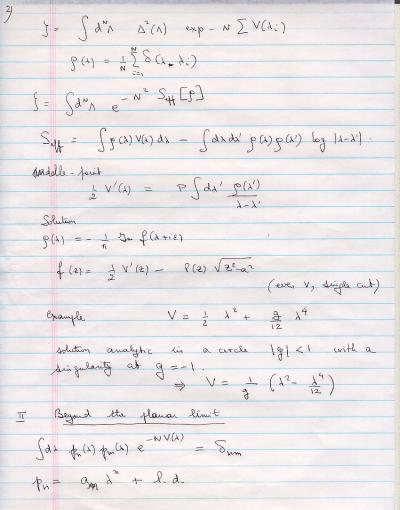 2)
ζ = ∫ d^N Λ Δ²(Λ) exp - N ∑ V(λ_i)
ρ(λ) = 1/N ∑_{i=1}^{N} δ(λ - λ_i)
ζ = ∫ d^N Λ e^{-N² S_eff [ρ]}
S_eff = ∫ ρ(λ) V(λ) dλ - ∫ dλ dλ' ρ(λ) ρ(λ') log |λ-λ'| .
saddle-point
1/2 V'(λ) = P ∫ dλ' ρ(λ')/(λ-λ')
Solution
ρ(λ) = - 1/π Im f(λ+iε)
f(z) = 1/2 V'(z) - P(z) √(z²-a²)
(even V, single cut)
Example V = 1/2 λ² + g/12 λ⁴
solution analytic in a circle |g| < 1 with a
singularity at g = -1.
⇒ V = 1/g (λ² - λ⁴/12)
II Beyond the planar limit
∫ dλ p_n(λ) p_m(λ) e^{-NV(λ)} = δ_nm
p_n = a_n λ^n + l.d.